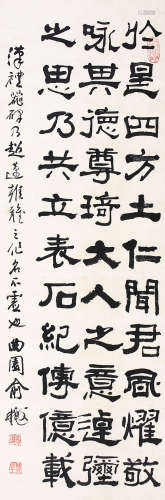 於是四方土仁聞君風燿敬
咏其德尊琦大人之意逴彌
之思乃共立表石紀傳億載
漢禮器碑乃超邁雄之作名不虛也曲園俞樾